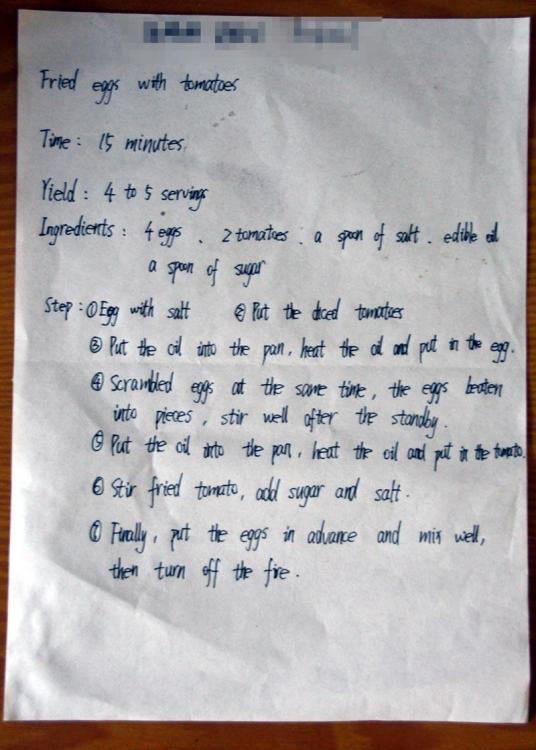 Fried eggs with tomatoes
Time: 15 minutes
Yield: 4 to 5 servings
Ingredients: 4 eggs . 2 tomatoes . a spoon of salt . edible oil
a spoon of sugar
Step: ① Egg with salt ② Put the diced tomatoes
③ Put the oil into the pan, heat the oil and put in the egg.
④ Scrambled eggs at the same time, the eggs beaten
into pieces, stir well after the standby.
⑤ Put the oil into the pan, heat the oil and put in the tomato.
⑥ Stir fried tomato, add sugar and salt.
Finally, put the eggs in advance and mix well,
then turn off the fire.